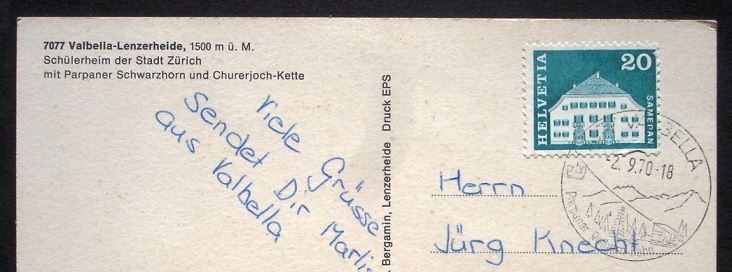 7077 Valbella-Lenzerheide, 1500 m ü. M.
Schülerheim der Stadt Zürich
mit Parpaner Schwarzhorn und Churerjoch-Kette
viele Grüsse
sendet Dir
aus Valbella
Bergamin, Lenzerheide Druck EPS
HELVETIA
20
SAMEDAN
VALBELLA
2. 9.70-18
Herrn
Jürg Knecht